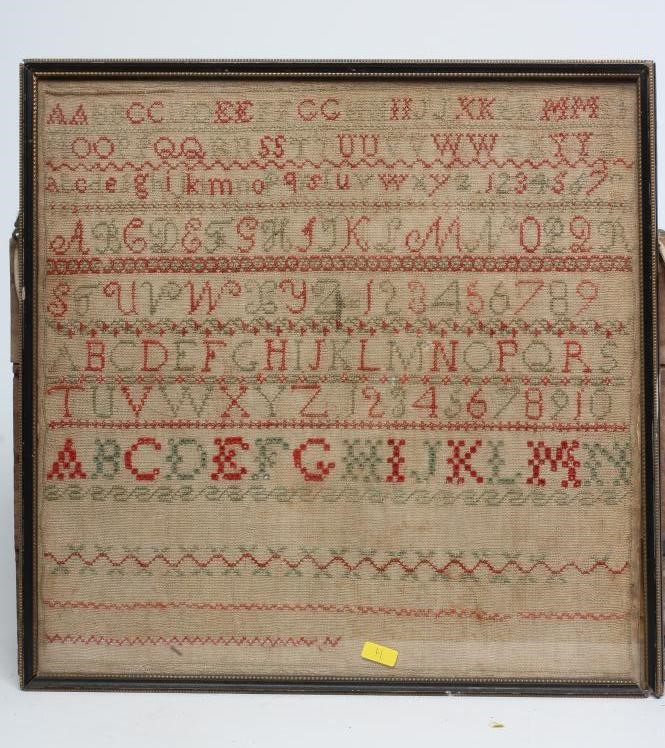 AABBCCDDEEFFGGHHIJJKKLLMM
OOPPQQRRSSTTUUVVWWXXYY
abcdefghijklmnopqrsſtuvwxyz.1234567
ABCDEFGHIJKLMNOPQR
STUVWXYZ 123456789
ABCDEFGHIJKLMNOPQRS
TUVWXYZ12345678910
ABCDEFGHIJKLMN
H